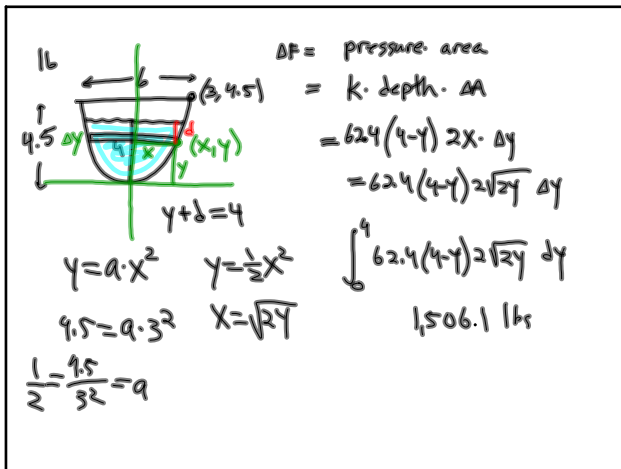 lb
6
(3, 4.5)
4.5
Δy
4
x
d
(x,y)
y
y+d=4
y=a·x²
y=½x²
4.5=a·3²
x=√2y
1/2=4.5/3²=a
ΔF= pressure·area
= k·depth·ΔA
=62.4(4-y) 2x·Δy
=62.4(4-y)2√2y Δy
∫₀⁴ 62.4(4-y)2√2y dy
1,506.1 lbs